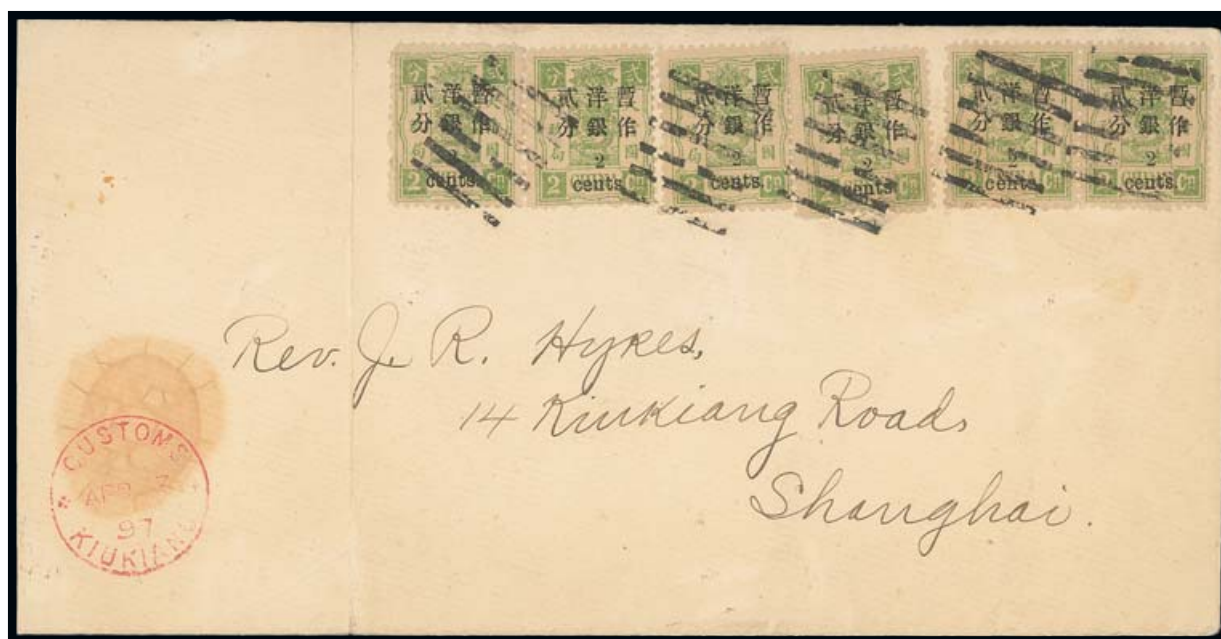 暫作洋銀貳分
2
cents.
暫作洋銀貳分
2
cents.
暫作洋銀貳分
2
cents.
暫作洋銀貳分
2
cents.
暫作洋銀貳分
2
cents.
暫作洋銀貳分
2
cents.
Rev. J. R. Hykes,
14 Kiukiang Road,
Shanghai.
CUSTOMS
APR
97
KIUKIANG